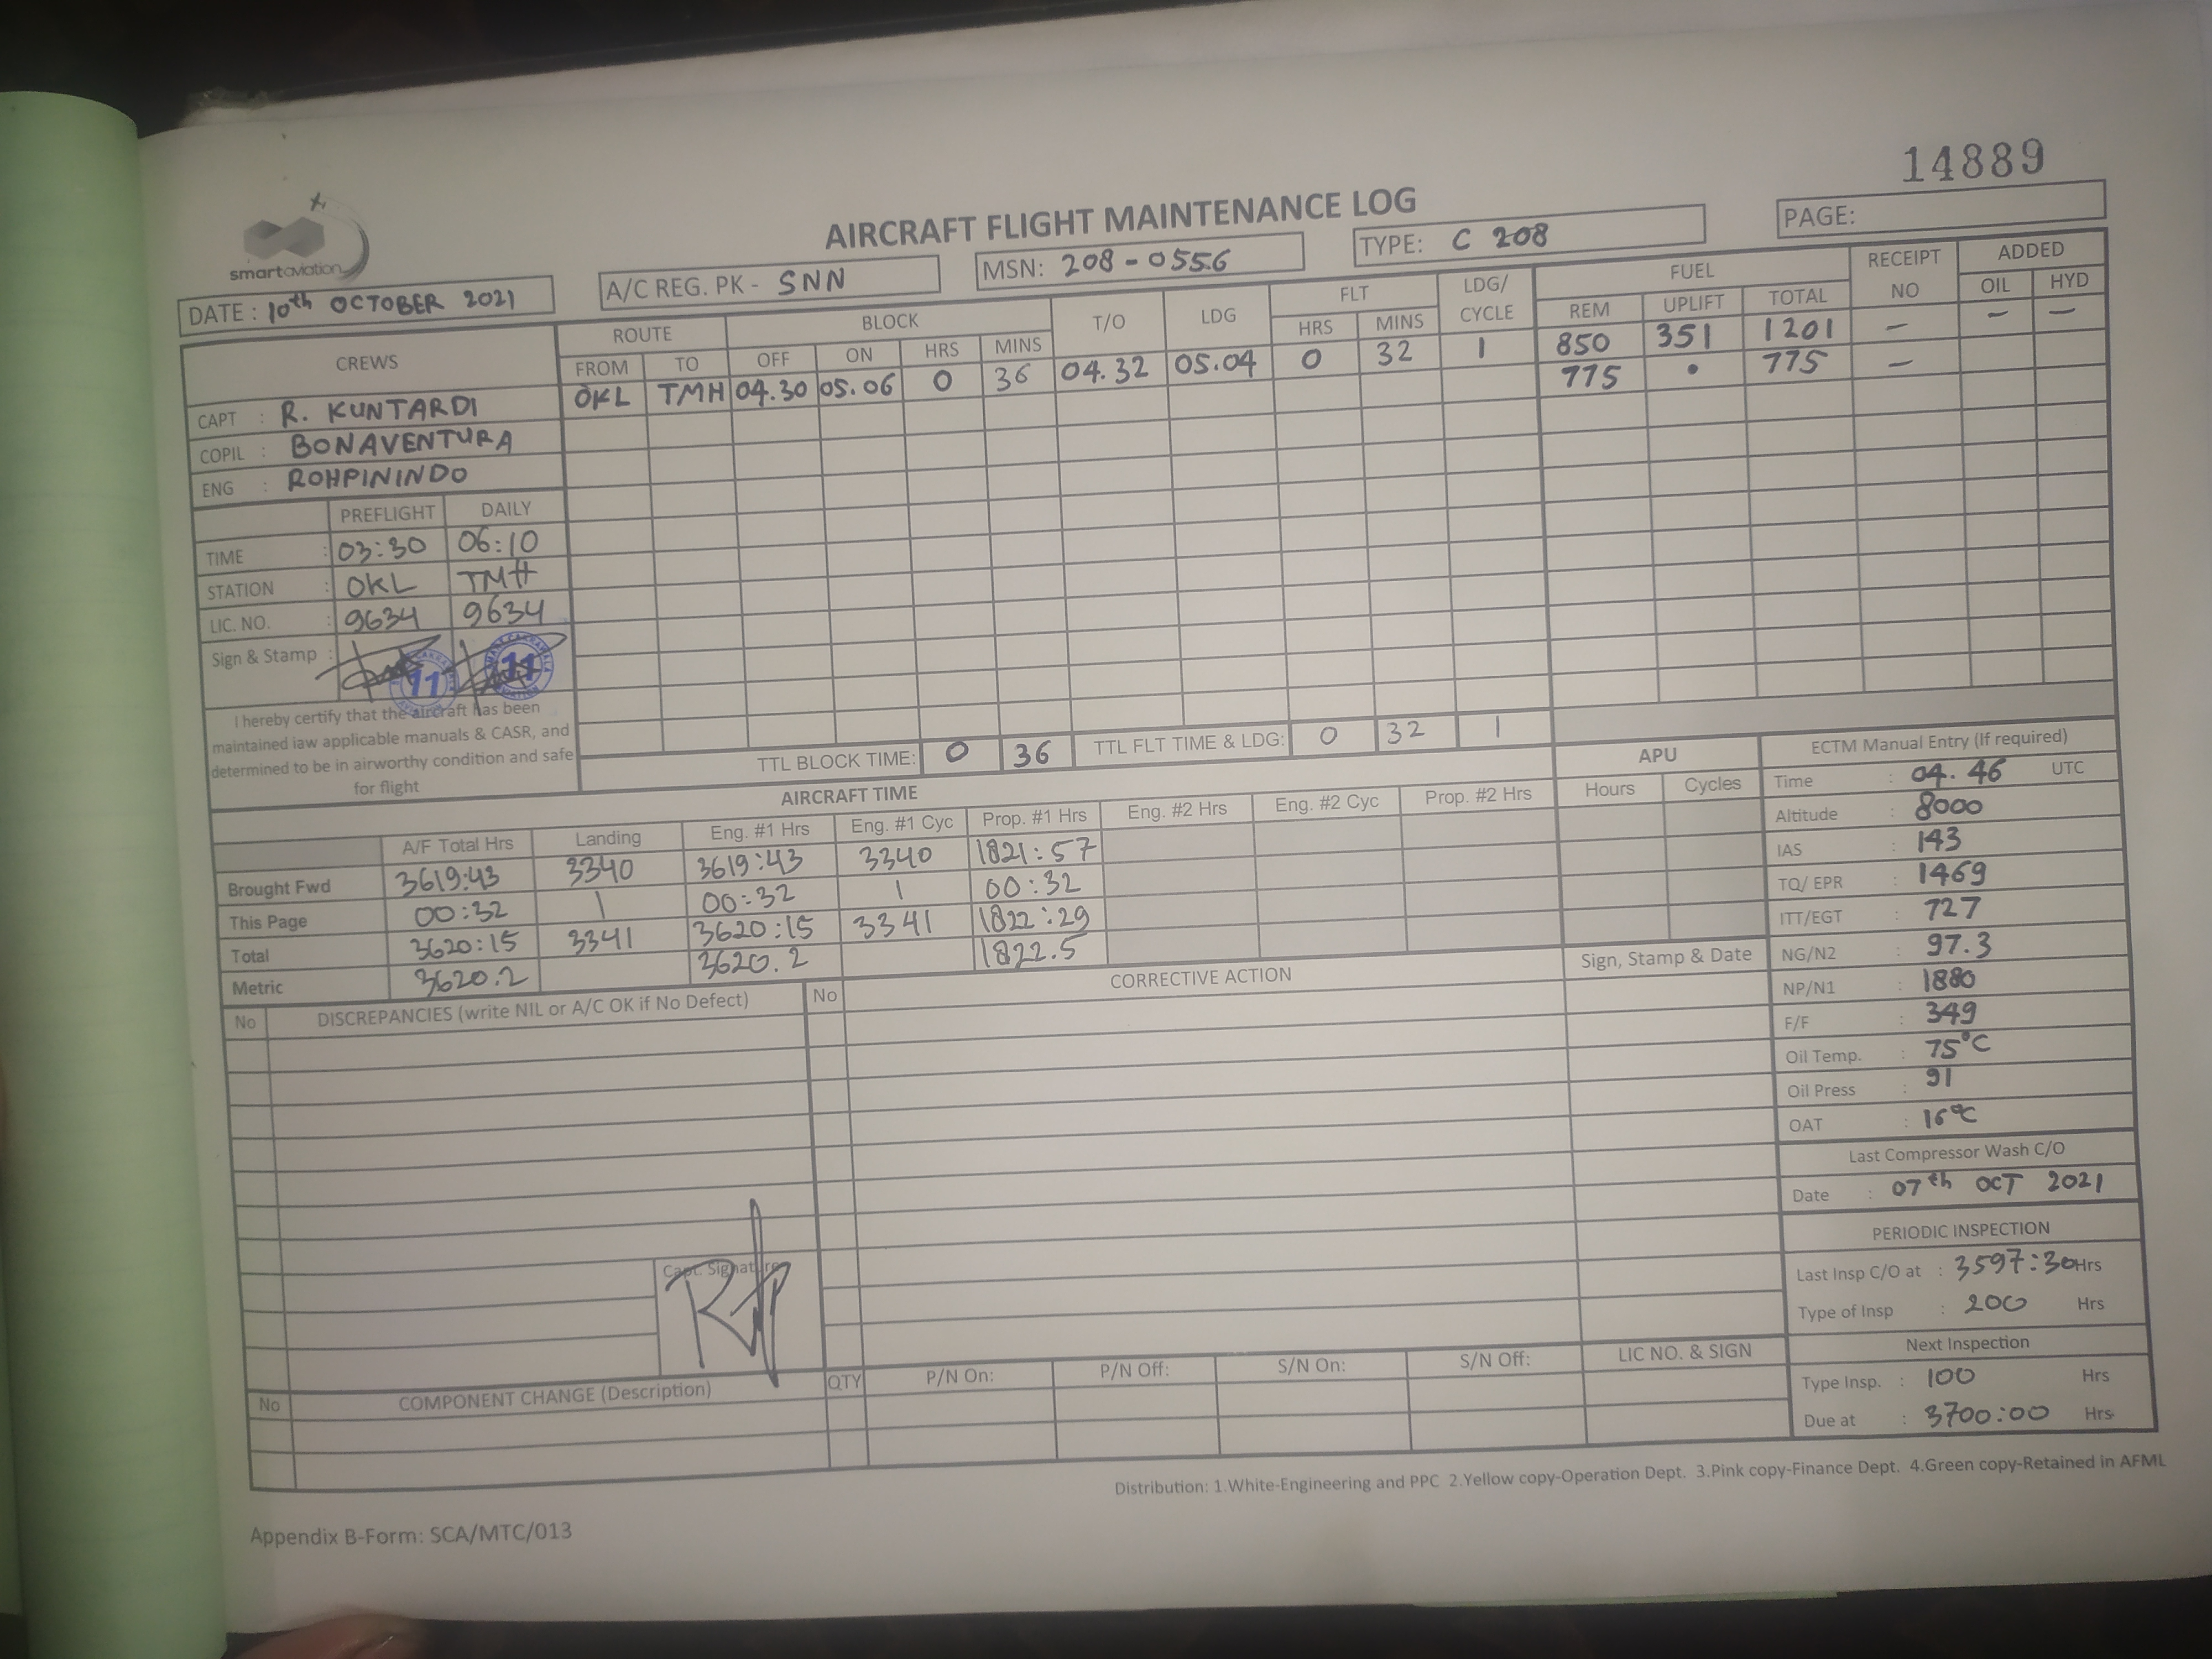 14889
smartaviation
AIRCRAFT FLIGHT MAINTENANCE LOG
PAGE:
DATE : 10th OCTOBER 2021
A/C REG. PK - SNN
MSN: 208-0556
TYPE: C 208
CREWS ROUTE BLOCK T/O LDG FLT LDG/ CYCLE FUEL RECEIPT NO ADDED
FROM TO OFF ON HRS MINS HRS MINS REM UPLIFT TOTAL OIL HYD
OKL TMH 04.30 05.06 0 36 04.32 05.04 0 32 1 850 351 1201 - - -
775 • 775 -
CAPT : R. KUNTARDI
COPIL : BONAVENTURA
ENG : ROHPININDO
PREFLIGHT DAILY
TIME : 03:30 06:10
STATION : OKL TMH
LIC. NO. : 9634 9634
Sign & Stamp :
11 11
I hereby certify that the aircraft has been
maintained iaw applicable manuals & CASR, and
determined to be in airworthy condition and safe
for flight
TTL BLOCK TIME: 0 36 TTL FLT TIME & LDG: 0 32 1
AIRCRAFT TIME
A/F Total Hrs Landing Eng. #1 Hrs Eng. #1 Cyc Prop. #1 Hrs Eng. #2 Hrs Eng. #2 Cyc Prop. #2 Hrs
Brought Fwd 3619:43 3340 3619:43 3340 1821:57
This Page 00:32 1 00:32 1 00:32
Total 3620:15 3341 3620:15 3341 1822:29
Metric 3620.2 3620.2 1822.5
APU
Hours Cycles
ECTM Manual Entry (If required)
Time : 04.46 UTC
Altitude : 8000
IAS : 143
TQ/ EPR : 1469
ITT/EGT : 727
NG/N2 : 97.3
NP/N1 : 1880
F/F : 349
Oil Temp. : 75°C
Oil Press : 91
OAT : 16°C
Last Compressor Wash C/O
Date : 07th OCT 2021
PERIODIC INSPECTION
Last Insp C/O at : 3597:30 Hrs
Type of Insp : 200 Hrs
Next Inspection
Type Insp. : 100 Hrs
Due at : 3700:00 Hrs
No DISCREPANCIES (write NIL or A/C OK if No Defect) No CORRECTIVE ACTION Sign, Stamp & Date
Capt. Signature
No COMPONENT CHANGE (Description) QTY P/N On: P/N Off: S/N On: S/N Off: LIC NO. & SIGN
Distribution: 1.White-Engineering and PPC 2.Yellow copy-Operation Dept. 3.Pink copy-Finance Dept. 4.Green copy-Retained in AFML
Appendix B-Form: SCA/MTC/013